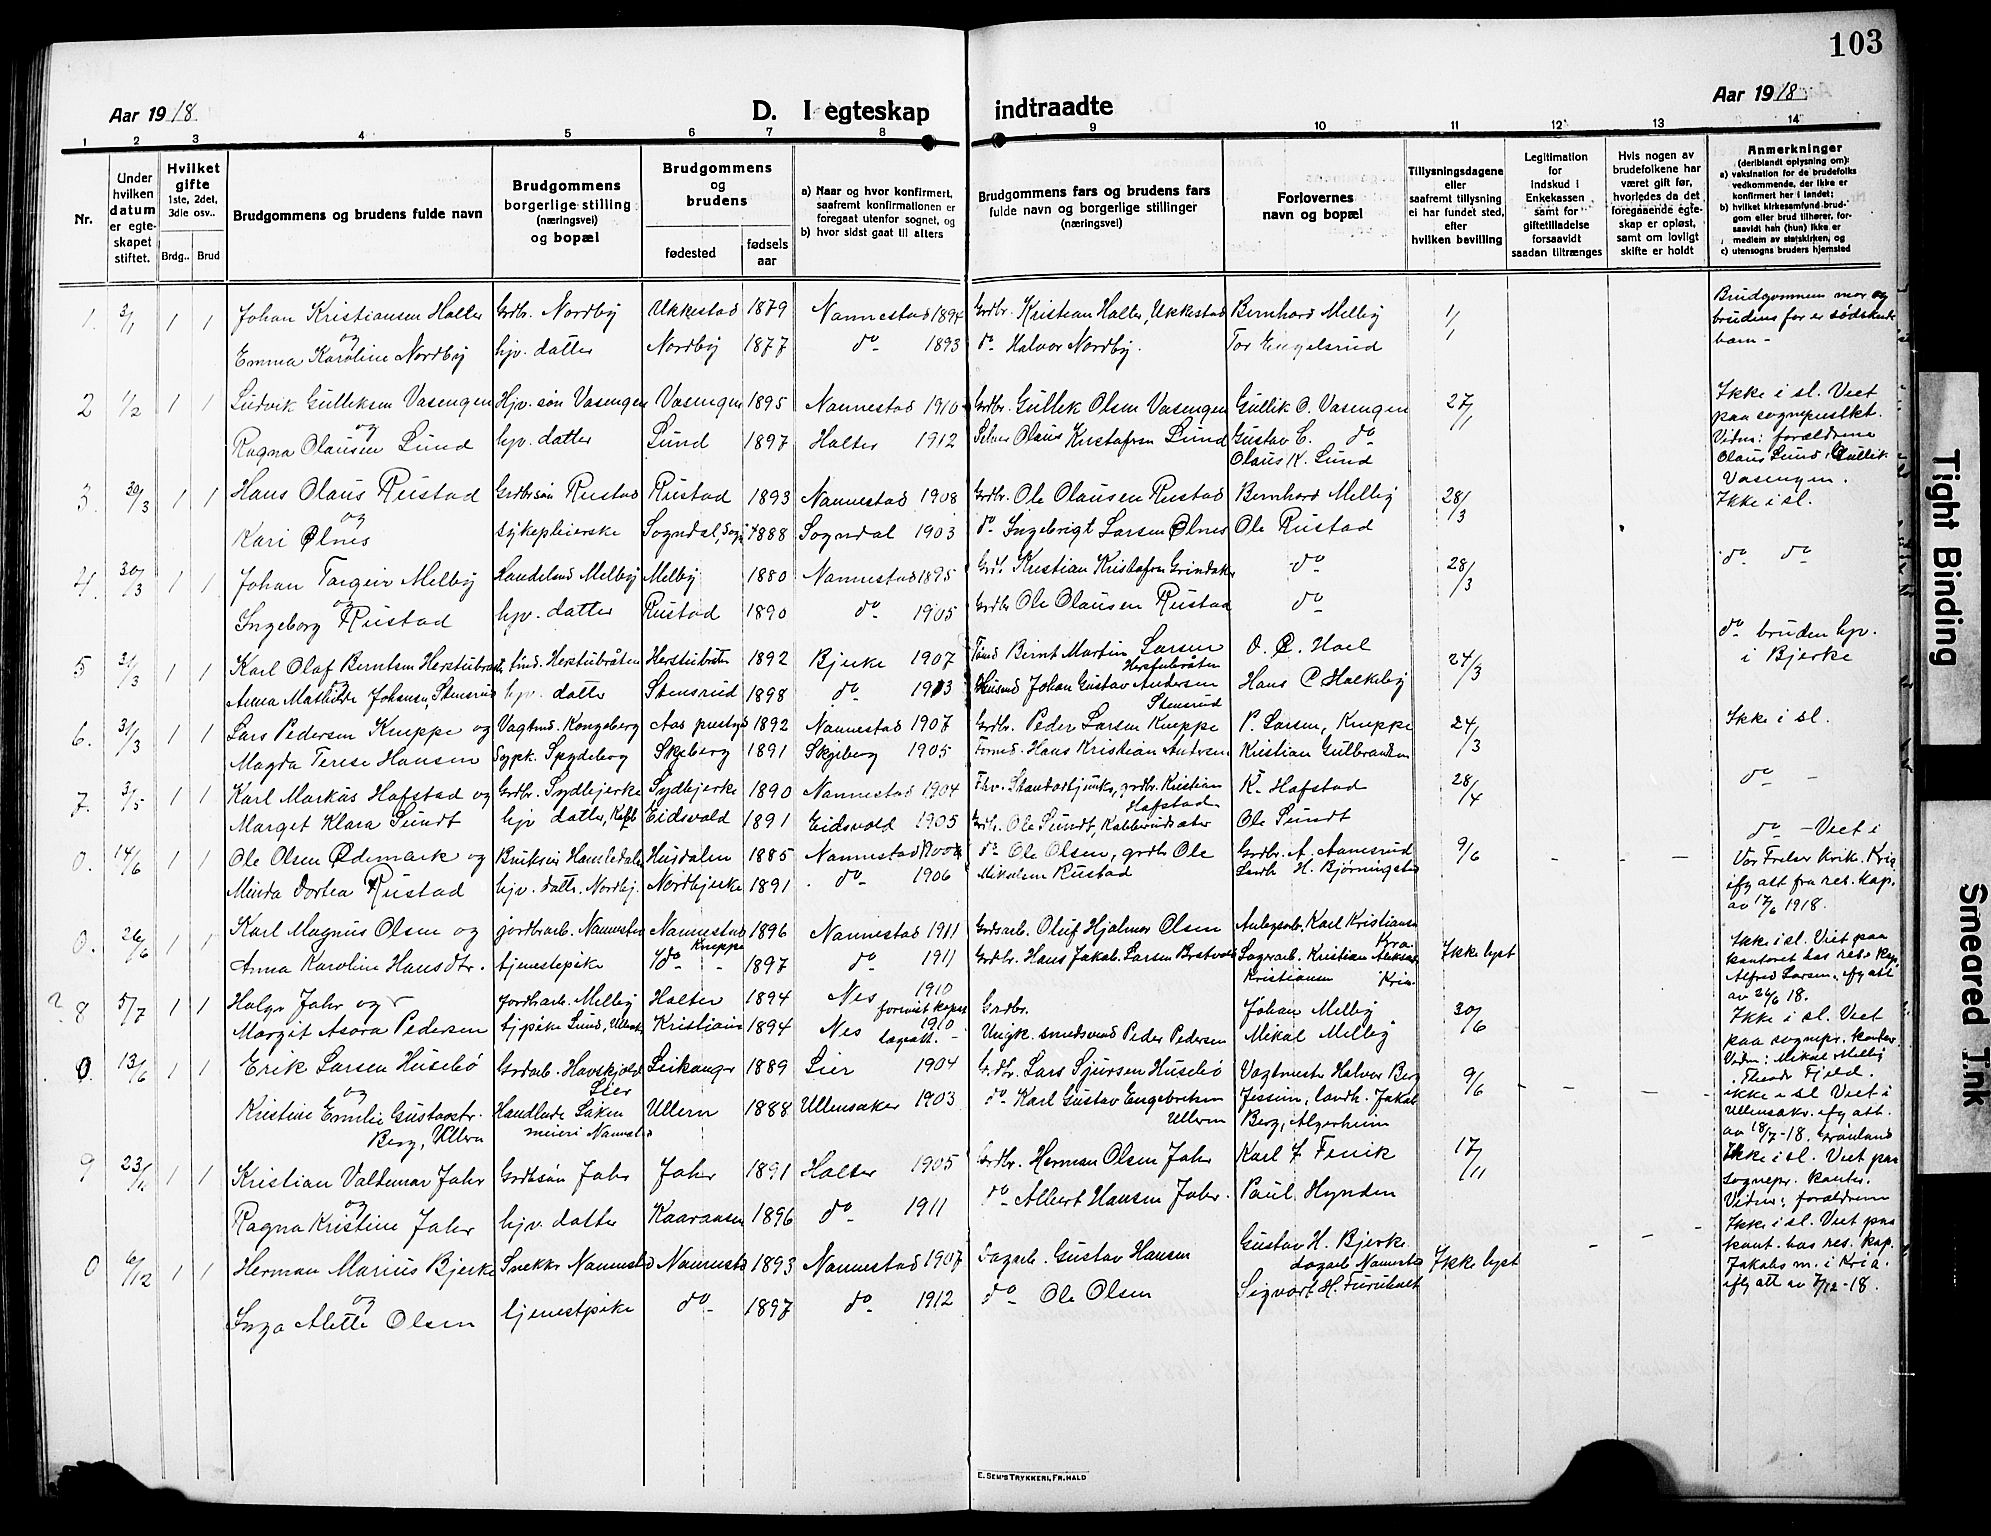 103
Aar 1918
D. I egteskap indtraadte
Aar 1918
1 2 3 4 5 6 7 8 9 10 11 12 13 14
Nr.
Under hvilken datum er egteskapet stiftet.
Hvilket gifte 1ste, 2det, 3die osv..
Brdg.. Brud
Brudgommens og brudens fulde navn
Brudgommens borgerlige stilling (næringsvei) og bopæl
Brudgommens og brudens
fødested
fødsels aar
a) Naar og hvor konfirmert, saafremt konfirmationen er foregaat utenfor sognet, og
b) hvor sidst gaat til alters
Brudgommens fars og brudens fars fulde navn og borgerlige stillinger (næringsvei)
Forlovernes navn og bopæl
Tillysningsdagene eller saafremt tillysning ei har fundet sted, efter hvilken bevilling
Legitimation for Indskud i Enkekassen samt for giftetilladelse forsaavidt saadan tiltrænges
Hvis nogen av brudefolkene har været gift før, hvorledes da det foregaaende egteskap er opløst, samt om lovligt skifte er holdt
Anmerkninger
(deriblandt oplysning om):
a) vaksination for de brudefolks vedkommende, der ikke er konfirmert her i landet;
b) hvilket kirkesamfund brudgom eller brud tilhører, forsaavidt han (hun) ikke er medlem av statskirken, og
c) utensogns bruders hjemsted
1. 3/1 1 1 Johan Kristiansen Haller Grdbr. Nordby Ukkestad 1879 Nannestad 1894 Grdbr. Kristian Haller, Ukkestad Bernhard Melby 1/1 Brudgommens mor og brudens far er sødskende barn-
og
Emma Karoline Nordby hjv. datter Nordby 1877 do 1893 do Halvor Nordby. Tor Engelsrud
2 1/2 1 1 Ludvik Gulliksen Vasengen Hjv. søn Vasengen Vasengen 1895 Nannestad 1910 Grdbr. Gullek Olsen Vasengen Gullik O. Vasengen 27/1 Ikke i sl. Viet paa
og
Ragna Olausen Lund hjv. datter Lund 1897 Holter 1912 Olaus Lund Gustav do
Olaus K. Lund
Vidner: forældrene Olaus Lund, Gullik Vasengen.
3. 30/3 1 1 Hans Olaus Rustad Grdbrsøn Rustad Rustad 1893 Nannestad 1908 Grdbr. Ole Olausen Rustad Bernhard Melby 28/3 Ikke i sl.
og
Kari Ølnes sykepleierske Sogndal, 1888 Sogndal 1903 do Ingebrigt Larsen Ølnes Ole Rustad
4. 30/3 1 1 Johan Torgeir Melby Handelsmd Melby Melby 1880 Nannestad 1895 Kristian Grindaker do 28/3 do do
og
Ingeborg Rustad hjv. datter Rustad 1890 do 1905 Grdbr Ole Olausen Rustad do
5 31/3 1 1 Karl Olaf Berntsen Herstubråten Herstubråten 1892 Bjerke 1907 Bernt Martin Larsen Herstubråten O. C. Hoel 24/3 do bruden hjv. i Bjerke
og
Anna Mathilde Johansen, Stensrud hjv. datter Stensrud 1898 do 1913 Husmd Johan Gustav Andersen Stensrud Hans
6. 31/3 1 1 Lars Pedersen Knuppe og Vagtmd. Kongsberg 1892 Nannestad 1907 Grdbr. Peder Larsen Knuppe P. Larsen, Knuppe 24/3 Ikke i sl.
Magda Terese Hansen Sypk. Spydeberg Skjeberg 1891 Skjeberg 1905 Hans Kristian Andersen Kristian Gulbrandsen
7. 3/5 1 1 Karl Markus Hafstad og Grdbr. Sydbjerke Sydbjerke 1890 Nannestad 1904 grdbr. Kristian Hafstad K. Hafstad 28/4 do -
Marget Klara Sundt hjv datter, Eidsvold 1891 Eidsvold 1905 Grdbr. Ole Sundt, Ole Sundt
0. 14/6 1 1 Ole Olsen Ødemark og 1885 Nannestad do Ole Olsen, grdbr Ole Grdbr. A. Aamesrud 9/6 - - do - Viet i Vor Frelser Kirk.
Minda Dortea Rustad hjv. datter. Nordbj. Nordbjerke 1891 do 1906 Mikalsen Rustad H. Bjørningstad
av 17/6 1918.
0. 26/6 1 1 Karl Magnus Olsen og jordbrarb. Nannestad Nannestad 1896 Nannestad 1911 Oluf Hjalmar Olsen Karl Kristiansen Kra Ikke lyst Ikke i sl. Viet paa kontoret hos res. kap. Alfred Larsen, eflg att av 26/6 18.
Anna Karoline Hansdtr. tjenestepike do Knuppe 1897 do 1911 Grdbr. Hans Jakob Larsen Kristian Kristiansen Kria.
8 5/7 1 1 Helge Jahr og Jordbrarb. Melby Holter 1894 Nes 1910 Grdbr. Johan Melby 30/6 Ikke i sl. Viet paa sognepr. kontor Vidn: Mikal Melby, Theodr Fjeld.
Margit Asora Pedersen tjpike Lund, Kristiania 1894 Nes 1910 smedsvend Peder Pedersen Mikal Melby
0. 13/6 1 1 Erik Larsen Husebö Leikanger 1889 Lier 1904 Grdbr. Lars Sjursen Husebö Vagtmester Halvor Berg 9/6 - - - ikke i sl Viet i Ullensakr. eflg att. av 18/7-18.
og
Kristine Emilie Gustavstr. Berg, Ullern meieri Nannest. Ullern 1888 Ullensaker 1903 do Karl Gustav Engebretsen Ullern Jessum, landh. Jakob Berg, Algarheim
9 23/11 1 1 Kristian Valdemar Jahr Grdbrsøn Jahr Jahr 1891 Holter 1905 Grdbr. Herman Olsen Jahr Karl J. Finik 17/11 Ikke i sl. Viet paa sognepr. kontor. Vidner: forældrene
og
Ragna Kristine Jahr hjv. datter 1896 do 1911 do Albert Hansen Jahr. Paul Hynden
0 6/12 1 1 Herman Marius Bjerke Snekkr Nannestad Nannestad 1893 Nannestad 1907 Dagarb. Gustav Hansen Gustav H. Bjerke dagarb Nannestad Ikke lyst - - Ikke i sl. Viet paa kont. hos res. kap. Jakobs m. i Kria. eflg att av 7/12-18.
og
Inga Alette Olsen tjenestpike do 1897 do 1912 do Ole Olsen Sigvart H. Furuholt
E. SEM'S TRYKKERI, FR.HALD
Tight Binding
Smeared Ink